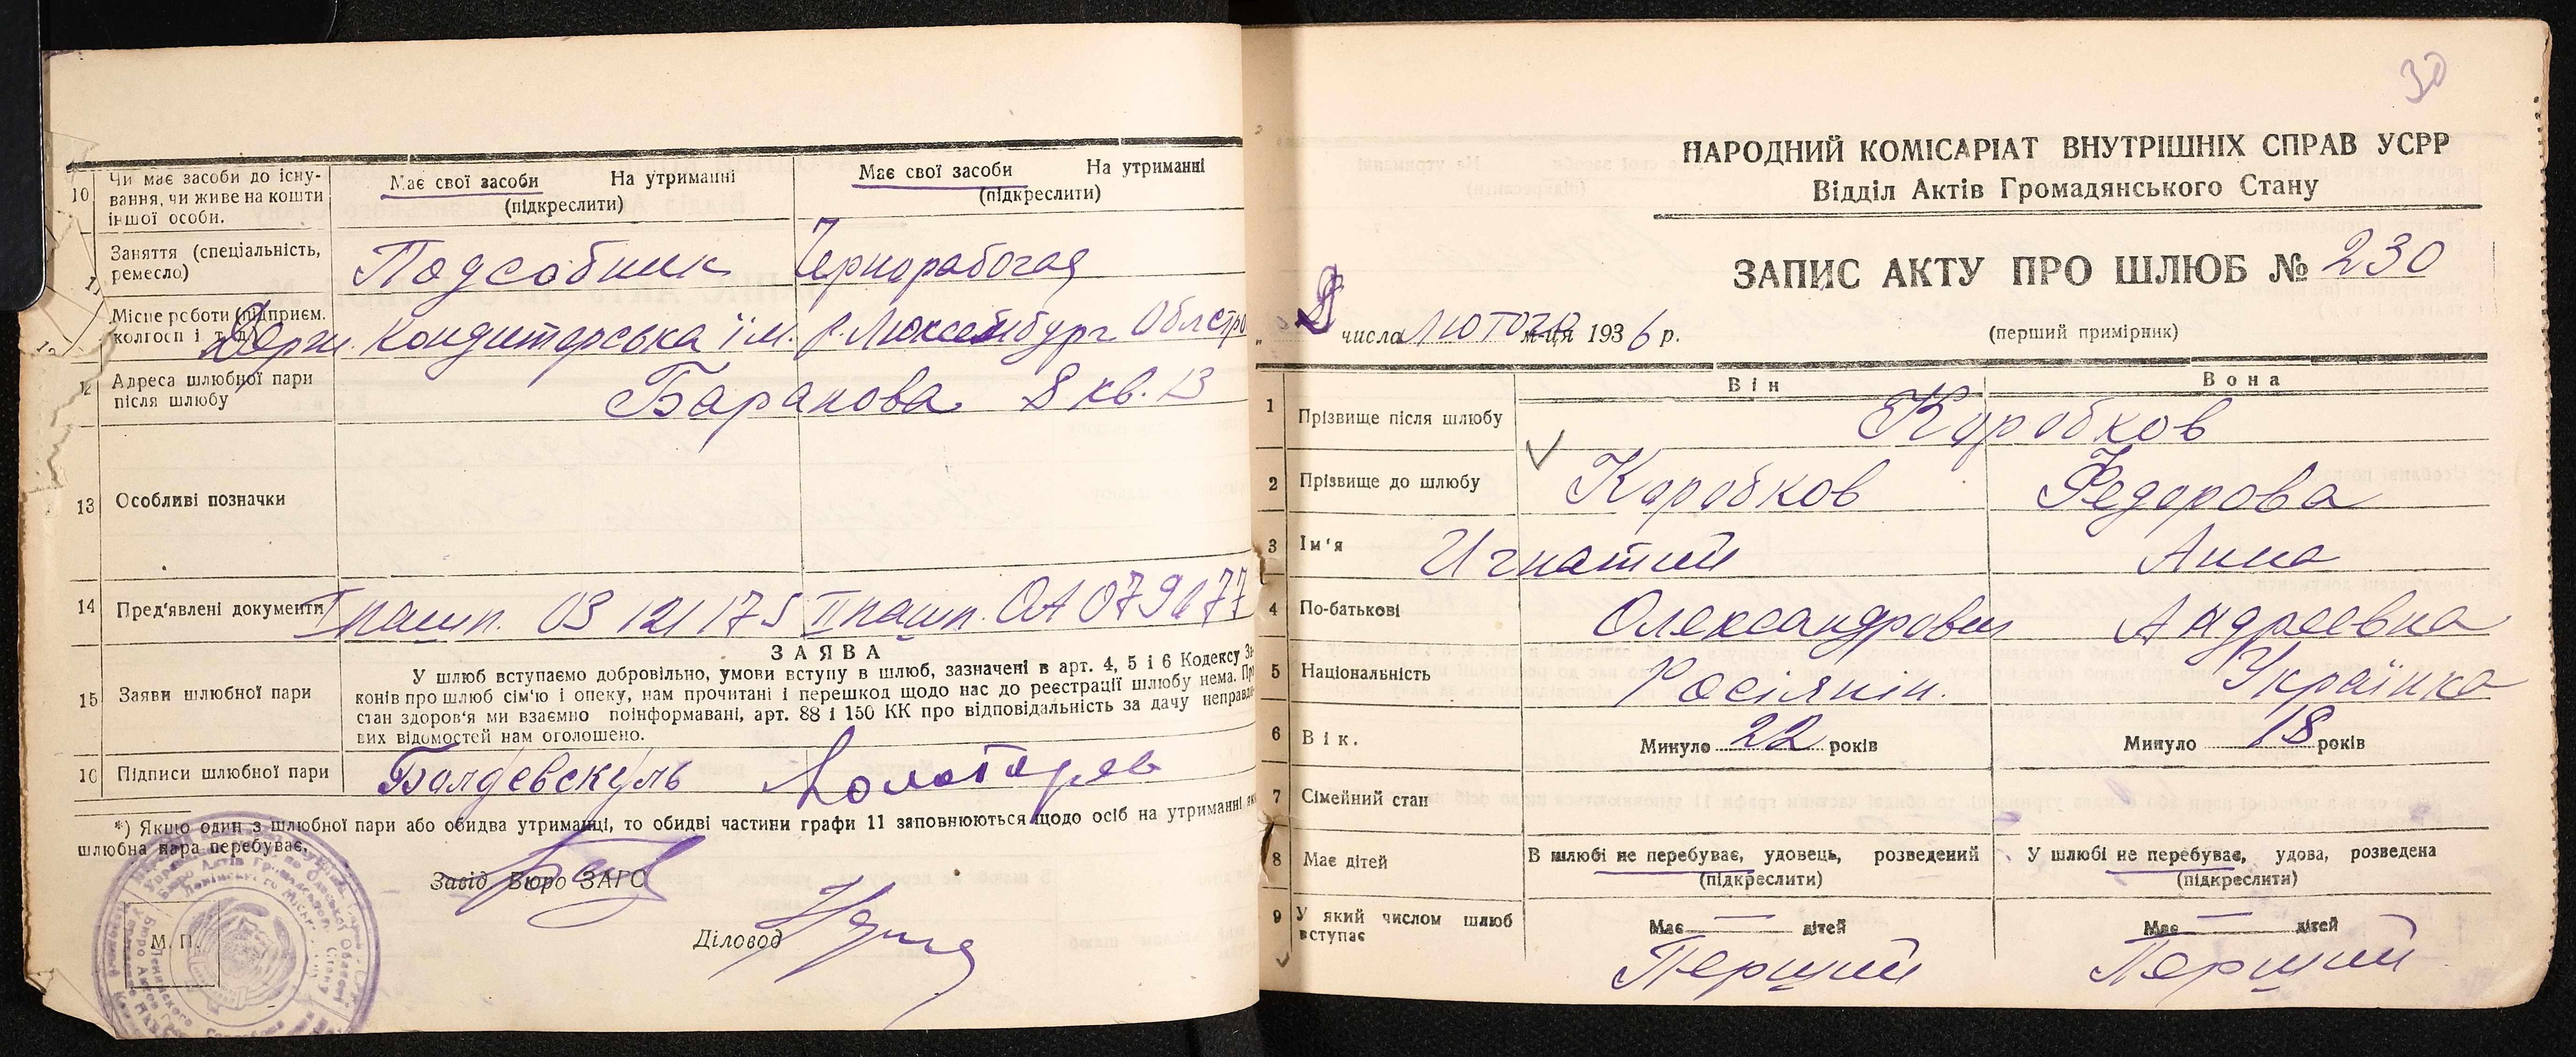 10 Чи має засоби до існу-
вання, чи живе на кошти
іншої особи.
Має свої засоби На утриманні
(підкреслити)
Має свої засоби На утриманні
(підкреслити)
11 Заняття (спеціальність,
ремесло)
Подсобник
Чернорабочая
Місце роботи (підприєм.
колгосп і т. д.)
Держ. Кондиторська їм. Р. Люксембург.
12 Адреса шлюбної пари
після шлюбу
Баранова 8 кв. 13
13 Особливі позначки
14 Пред'явлені документи
І пашп. ОЗ 121175 ІІ пашп. ОА
15 Заяви шлюбної пари
ЗАЯВА
У шлюб вступаємо добровільно, умови вступу в шлюб, зазначені в арт. 4, 5 і 6 Кодексу За-
конів про шлюб сім'ю і опеку, нам прочитані і перешкод щодо нас до реєстрації шлюбу нема. Про
стан здоров'я ми взаємно поінформавані, арт. 88 і 150 КК про відповідальність за дачу неправди-
вих відомостей нам оголошено.
16 Підписи шлюбної пари
*) Якщо один з шлюбної пари або обидва утриманці, то обидві частини графи 11 заповнюються щодо осіб на утриманні яких
шлюбна пара перебуває.
Завід Бюро ЗАГС
Діловод
М. П.
30
НАРОДНИЙ КОМІСАРІАТ ВНУТРІШНІХ СПРАВ УСРР
Відділ Актів Громадянського Стану
ЗАПИС АКТУ ПРО ШЛЮБ № 230
числа Лютого м-ця 1936 р.
(перший примірник)
Він Вона
1 Прізвище після шлюбу
Коробков
2 Прізвище до шлюбу
Коробков Федорова
3 Ім'я
Игнатий Анна
4 По-батькові
Олександрович Андреевна
5 Національність
Росіянін. Українка
6 Вік.
Минуло 22 років Минуло 18 років
7 Сімейний стан
8 Має дітей
В шлюбі не перебуває, удовець, розведений
(підкреслити)
У шлюбі не перебуває, удова, розведена
(підкреслити)
9 У який числом шлюб
вступає
Має — дітей Має — дітей
Перший Перший